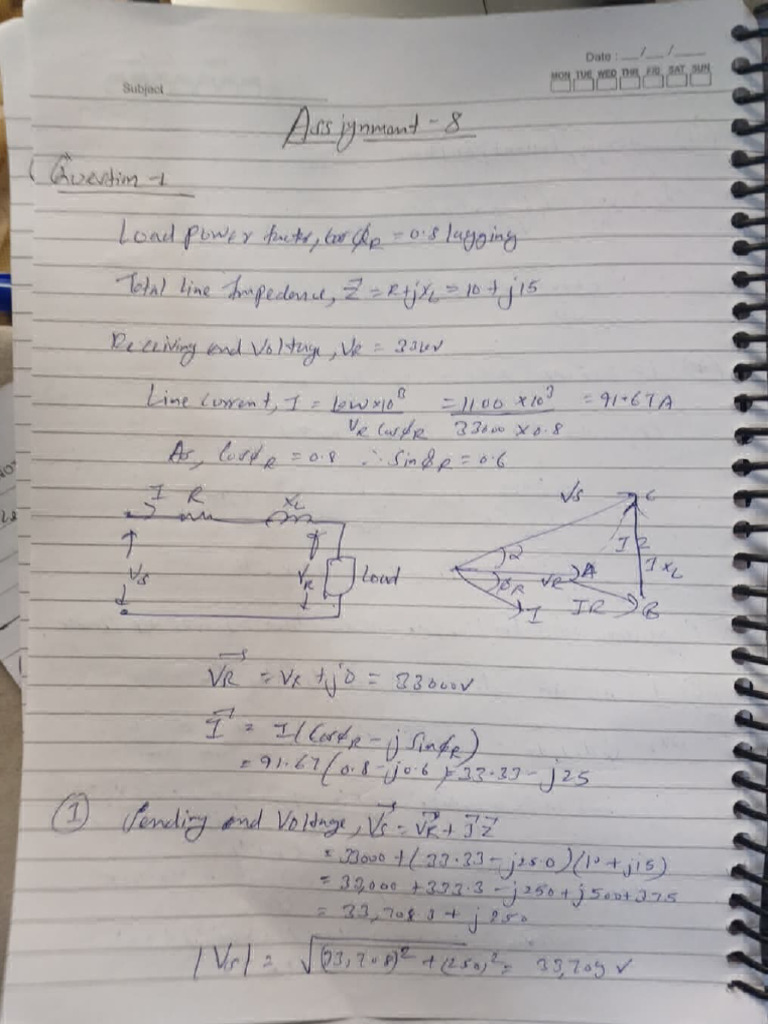 Date : __/__/__
MON TUE WED THR FRI SAT SUN
Subject
Assignment - 8
Question-1
Load power factor, cosφR = 0.8 lagging
Total Line Impedance, Z⃗ = R+jXL = 10 + j15
Receiving end Voltage, VR = 33kV
Line Current, I = kW×10³ / VR cosφR = 1100 ×10³ / 33000 ×0.8 = 91.67A
As, cosφR = 0.8 ∴ sinφR = 0.6
I R XL
VS VR Load
VS C
α I Z I XL
φR VR A
I IR B
V⃗R = VR + j0 = 33000V
I⃗ = I(cosφR - j sinφR)
= 91.67(0.8-j0.6) = 33.33 - j25
① Sending end Voltage, V⃗S = V⃗R + I⃗Z⃗
= 33000 + (33.33 - j25.0)(10 + j15)
= 33,000 + 333.3 - j250 + j500+375
= 33,708.3 + j250
|VS| = √(33,708)² + (250)² = 33,709 V